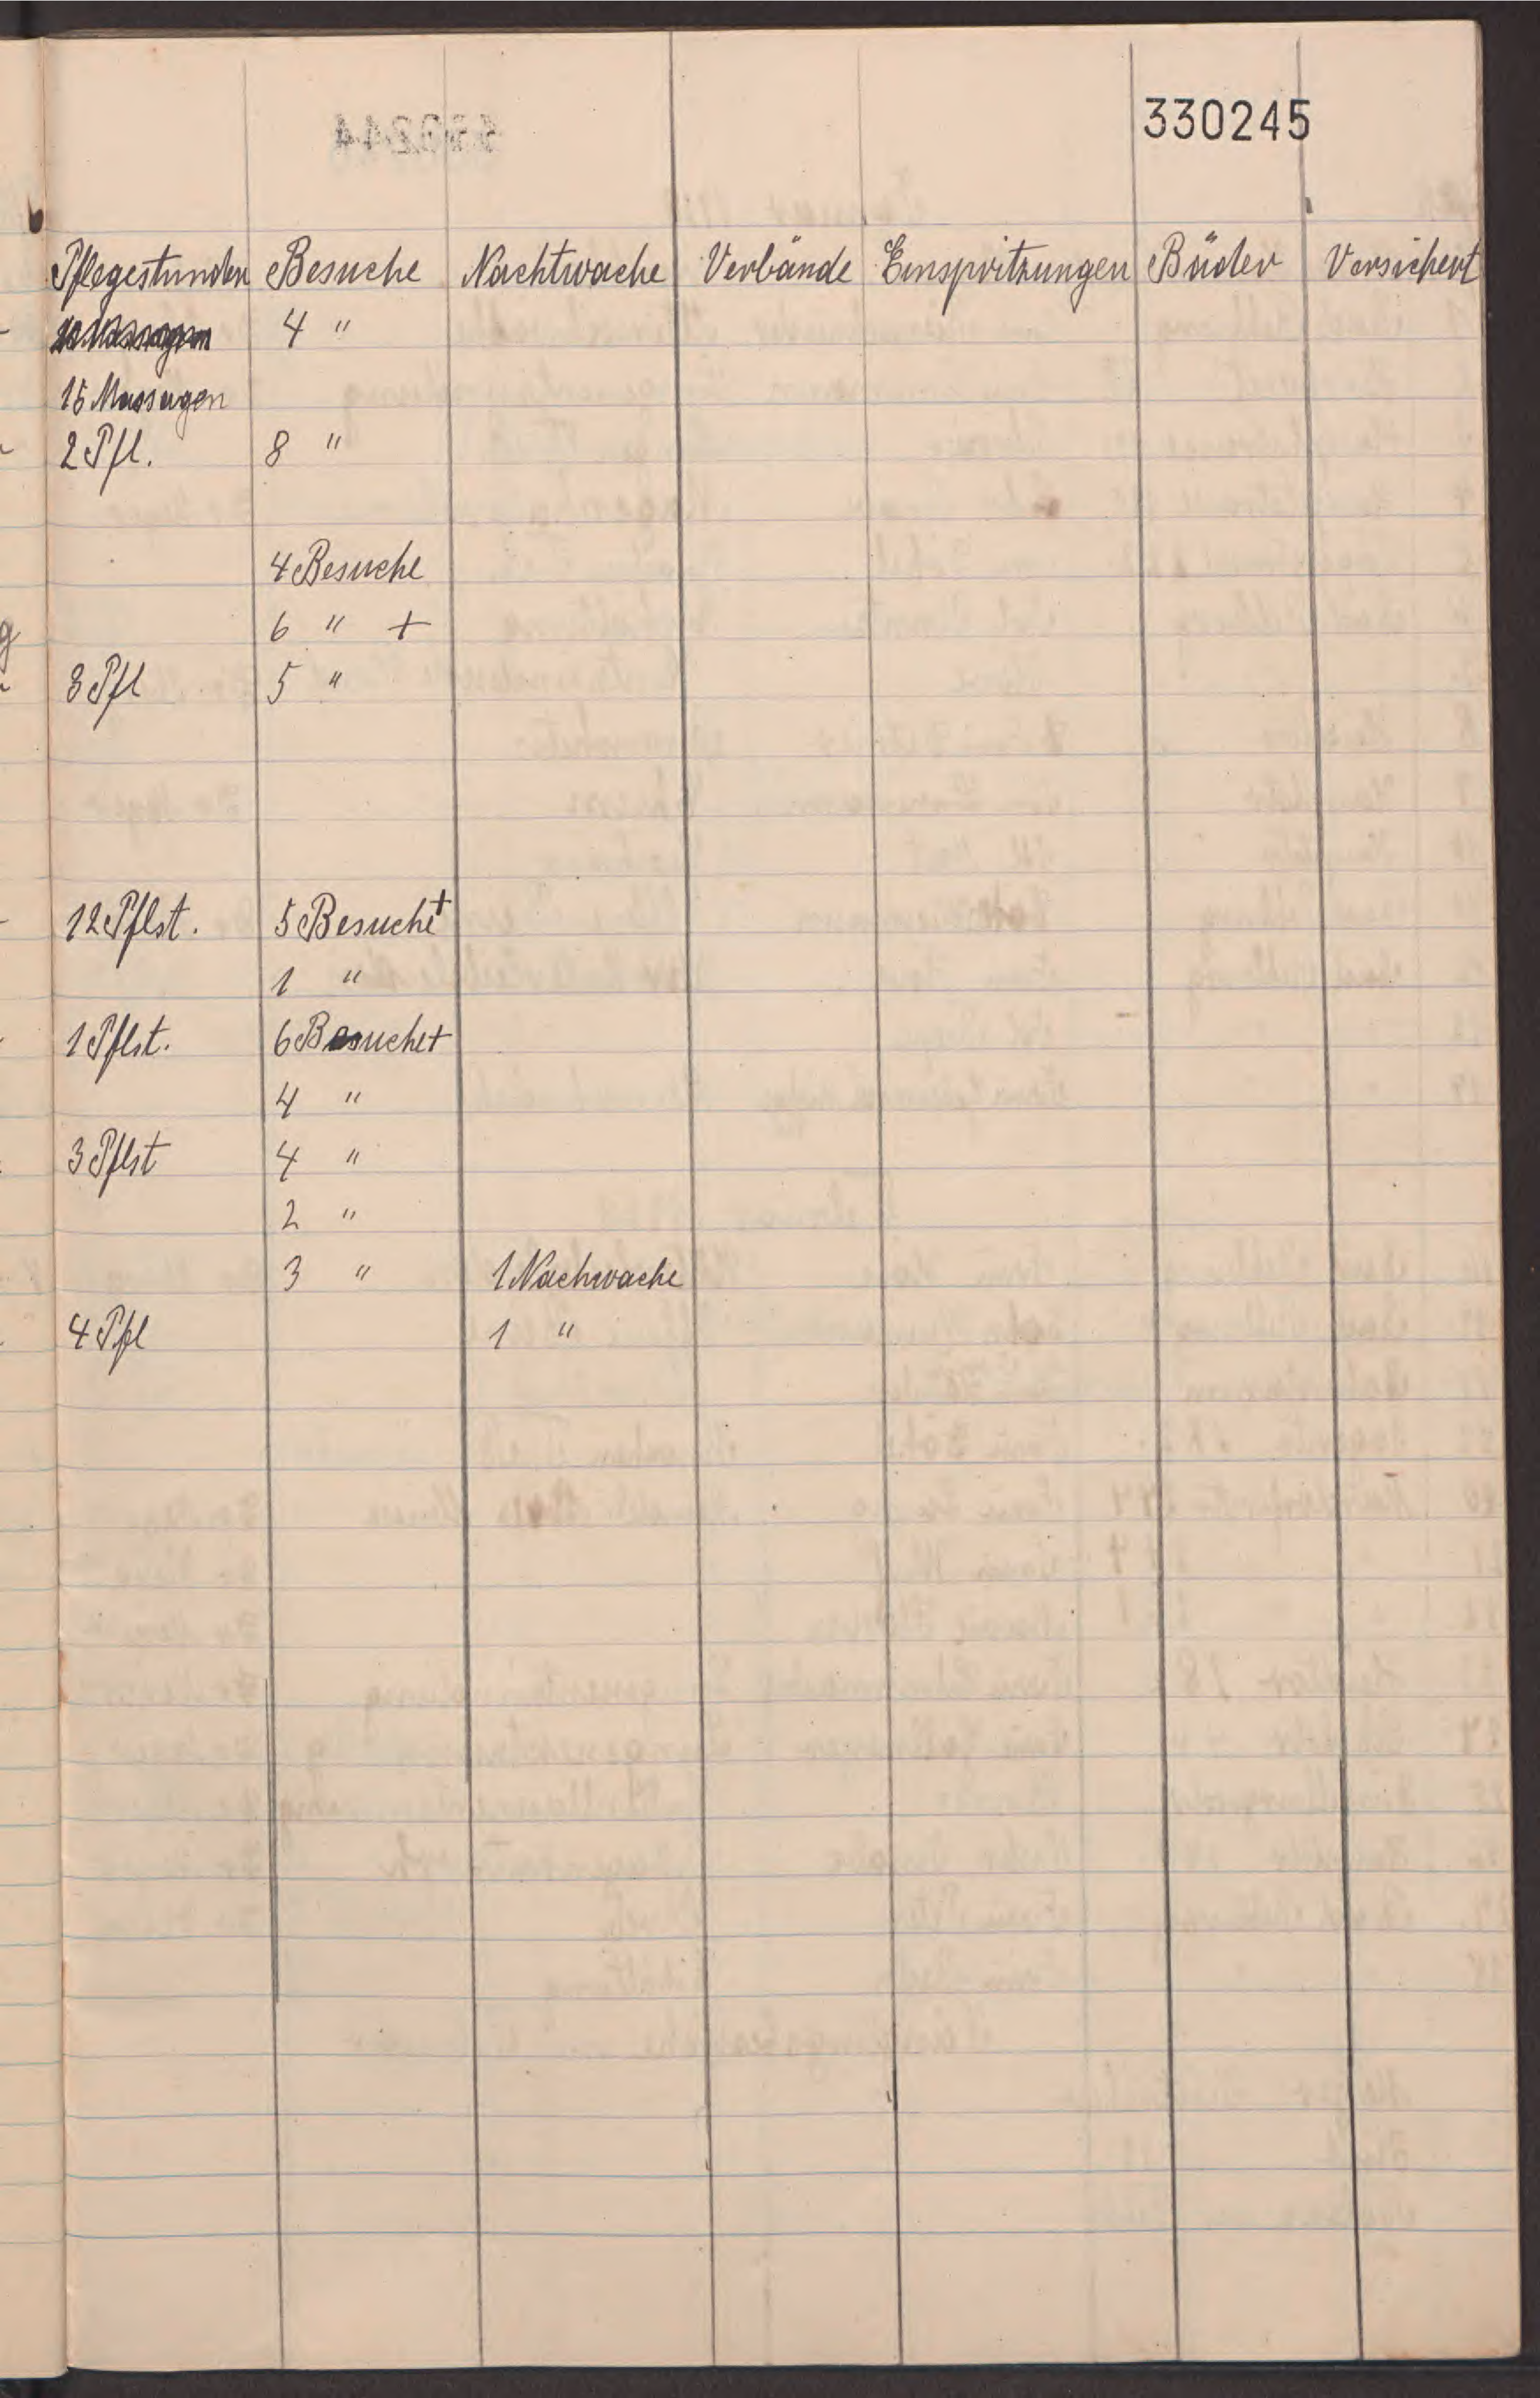 330245
Pflegestunden Besuche Nachtwache Verbände Einspritzungen Bäder Versichert
4 "
15 Massagen
2 Pfl. 8 "
4 Besuche
6 " +
3 Pfl 5 "
12 Pflst. 5 Besuche +
1 "
1 Pflst. 6 Besuche +
4 "
3 Pflst 4 "
2 "
3 " 1 Nachwache
4 Pfl 1 "